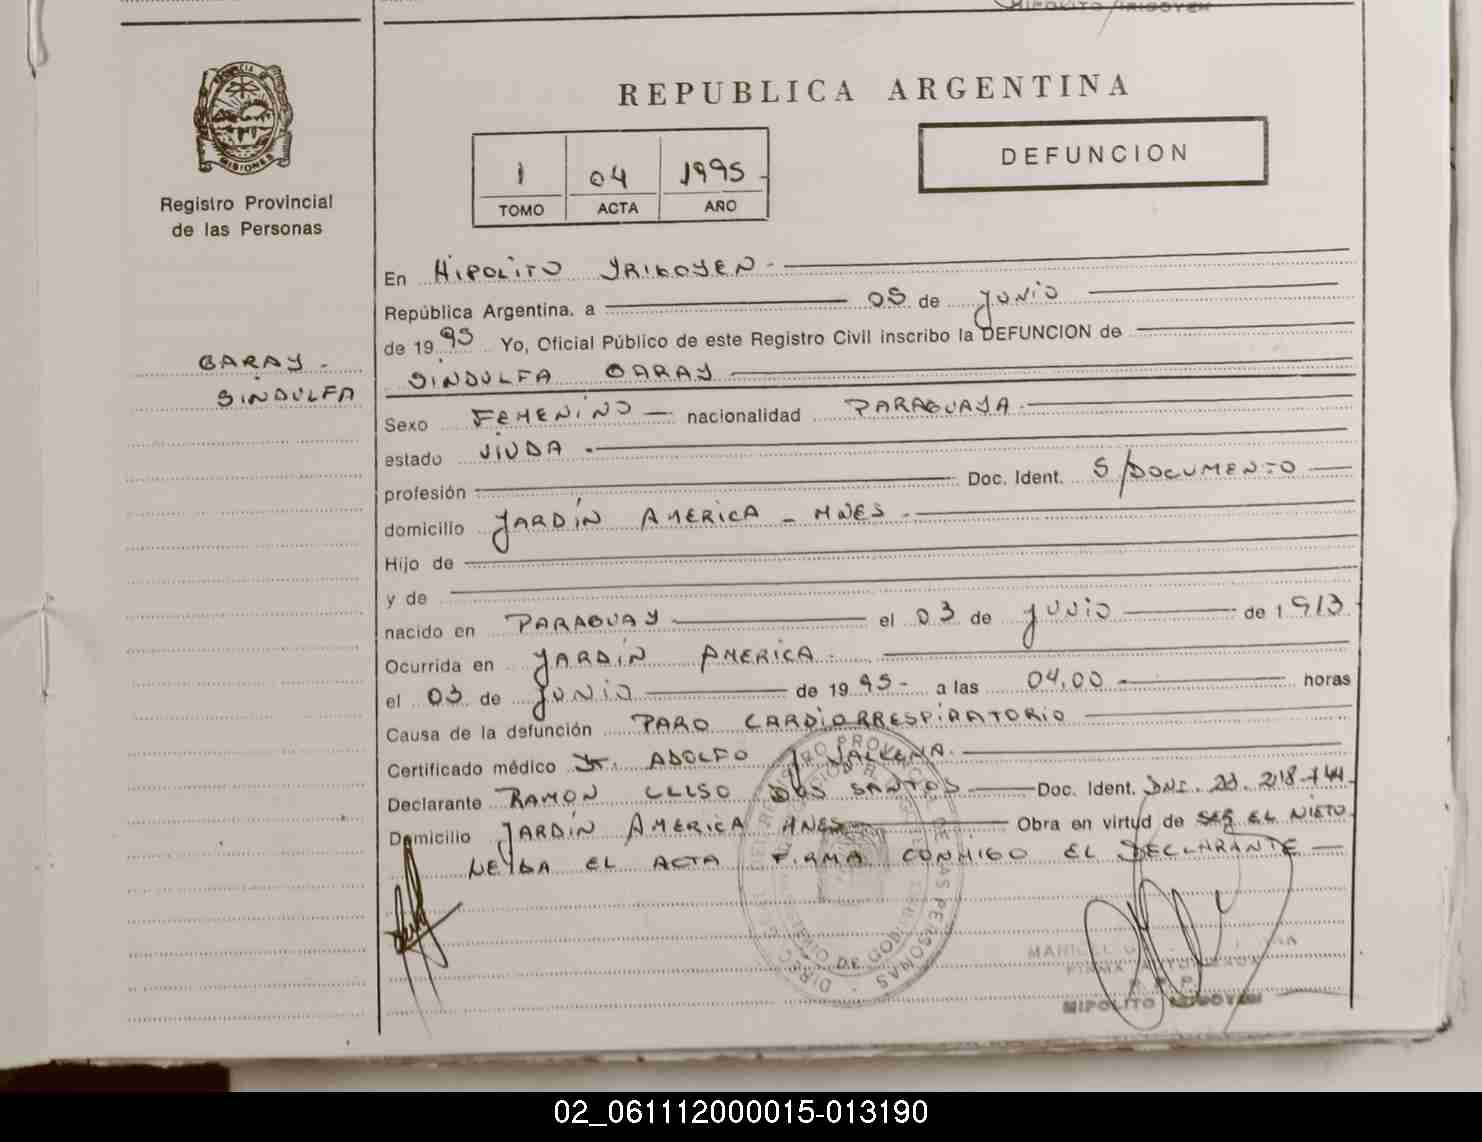 HIPOLITO IRIGOYEN
PROVINCIA DE
MISIONES
Registro Provincial
de las Personas
REPUBLICA ARGENTINA
1 04 1995
TOMO ACTA AÑO
DEFUNCION
GARAY -
SINDULFA
En HIPOLITO YRIGOYEN -
República Argentina, a 05 de JUNIO
de 1995 Yo, Oficial Público de este Registro Civil inscribo la DEFUNCION de
SINDULFA GARAY
Sexo FEMENINO nacionalidad PARAGUAYA -
estado VIUDA -
profesión Doc. Ident. S/DOCUMENTO
domicilio JARDÍN AMERICA - MNES -
Hijo de
y de
nacido en PARAGUAY el 03 de JUNIO de 1913
Ocurrida en JARDÍN AMERICA -
el 03 de JUNIO de 1995- a las 04,00 - horas
Causa de la defunción PARO CARDIORRESPIRATORIO
Certificado médico Dr. ADOLFO J
Declarante RAMON CELSO DOS SANTOS Doc. Ident. DNI. 23.218.744
Domicilio JARDÍN AMERICA MNES Obra en virtud de SER EL NIETO
LEIDA EL ACTA FIRMA CONMIGO EL DECLARANTE
DE LAS PERSONAS
DE GOBIERNO
FIRMA AUTORIZADA
HIPOLITO IRIGOYEN
02_061112000015-013190